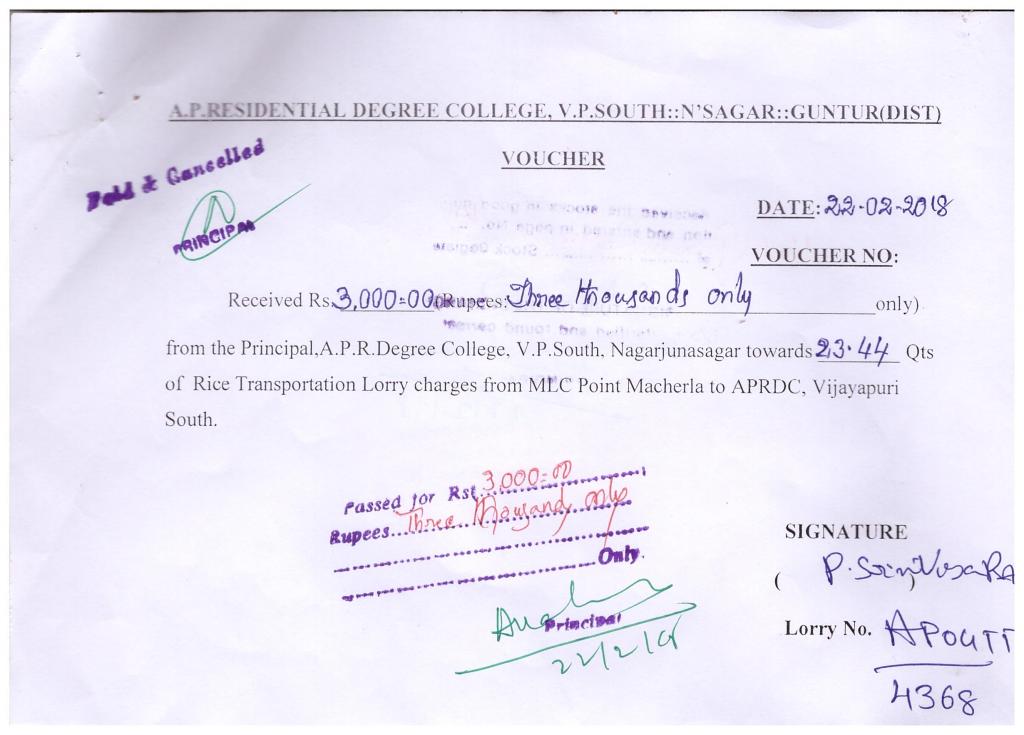 A.P.RESIDENTIAL DEGREE COLLEGE, V.P.SOUTH::N'SAGAR::GUNTUR(DIST)
Paid & Cancelled
VOUCHER
PRINCIPAL
DATE: 22-02-2018
VOUCHER NO:
Received Rs. 3,000=00 (Rupees: Three thousands only only)
from the Principal,A.P.R.Degree College, V.P.South, Nagarjunasagar towards 23.44 Qts
of Rice Transportation Lorry charges from MLC Point Macherla to APRDC, Vijayapuri
South.
Passed for Rs. 3,000=00
Rupees Three thousands only
Only.
SIGNATURE
( )
Principal
22/2/18
Lorry No.
4368